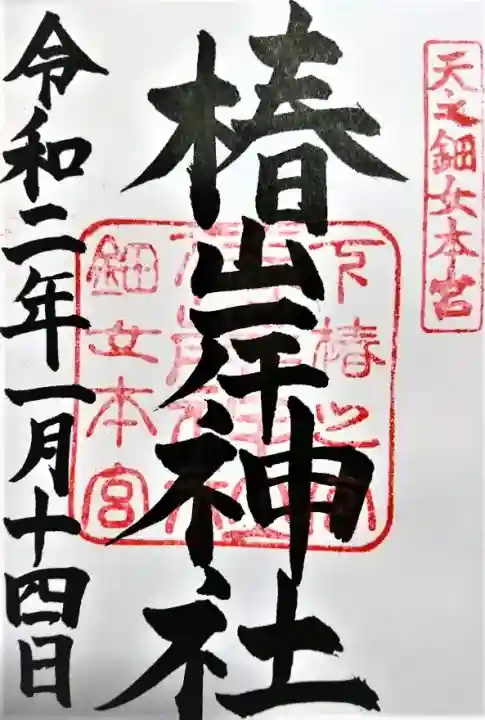 天之鈿女本宮
椿岸神社
下椿之宮
椿岸神社
鈿女本宮
令和二年一月十四日